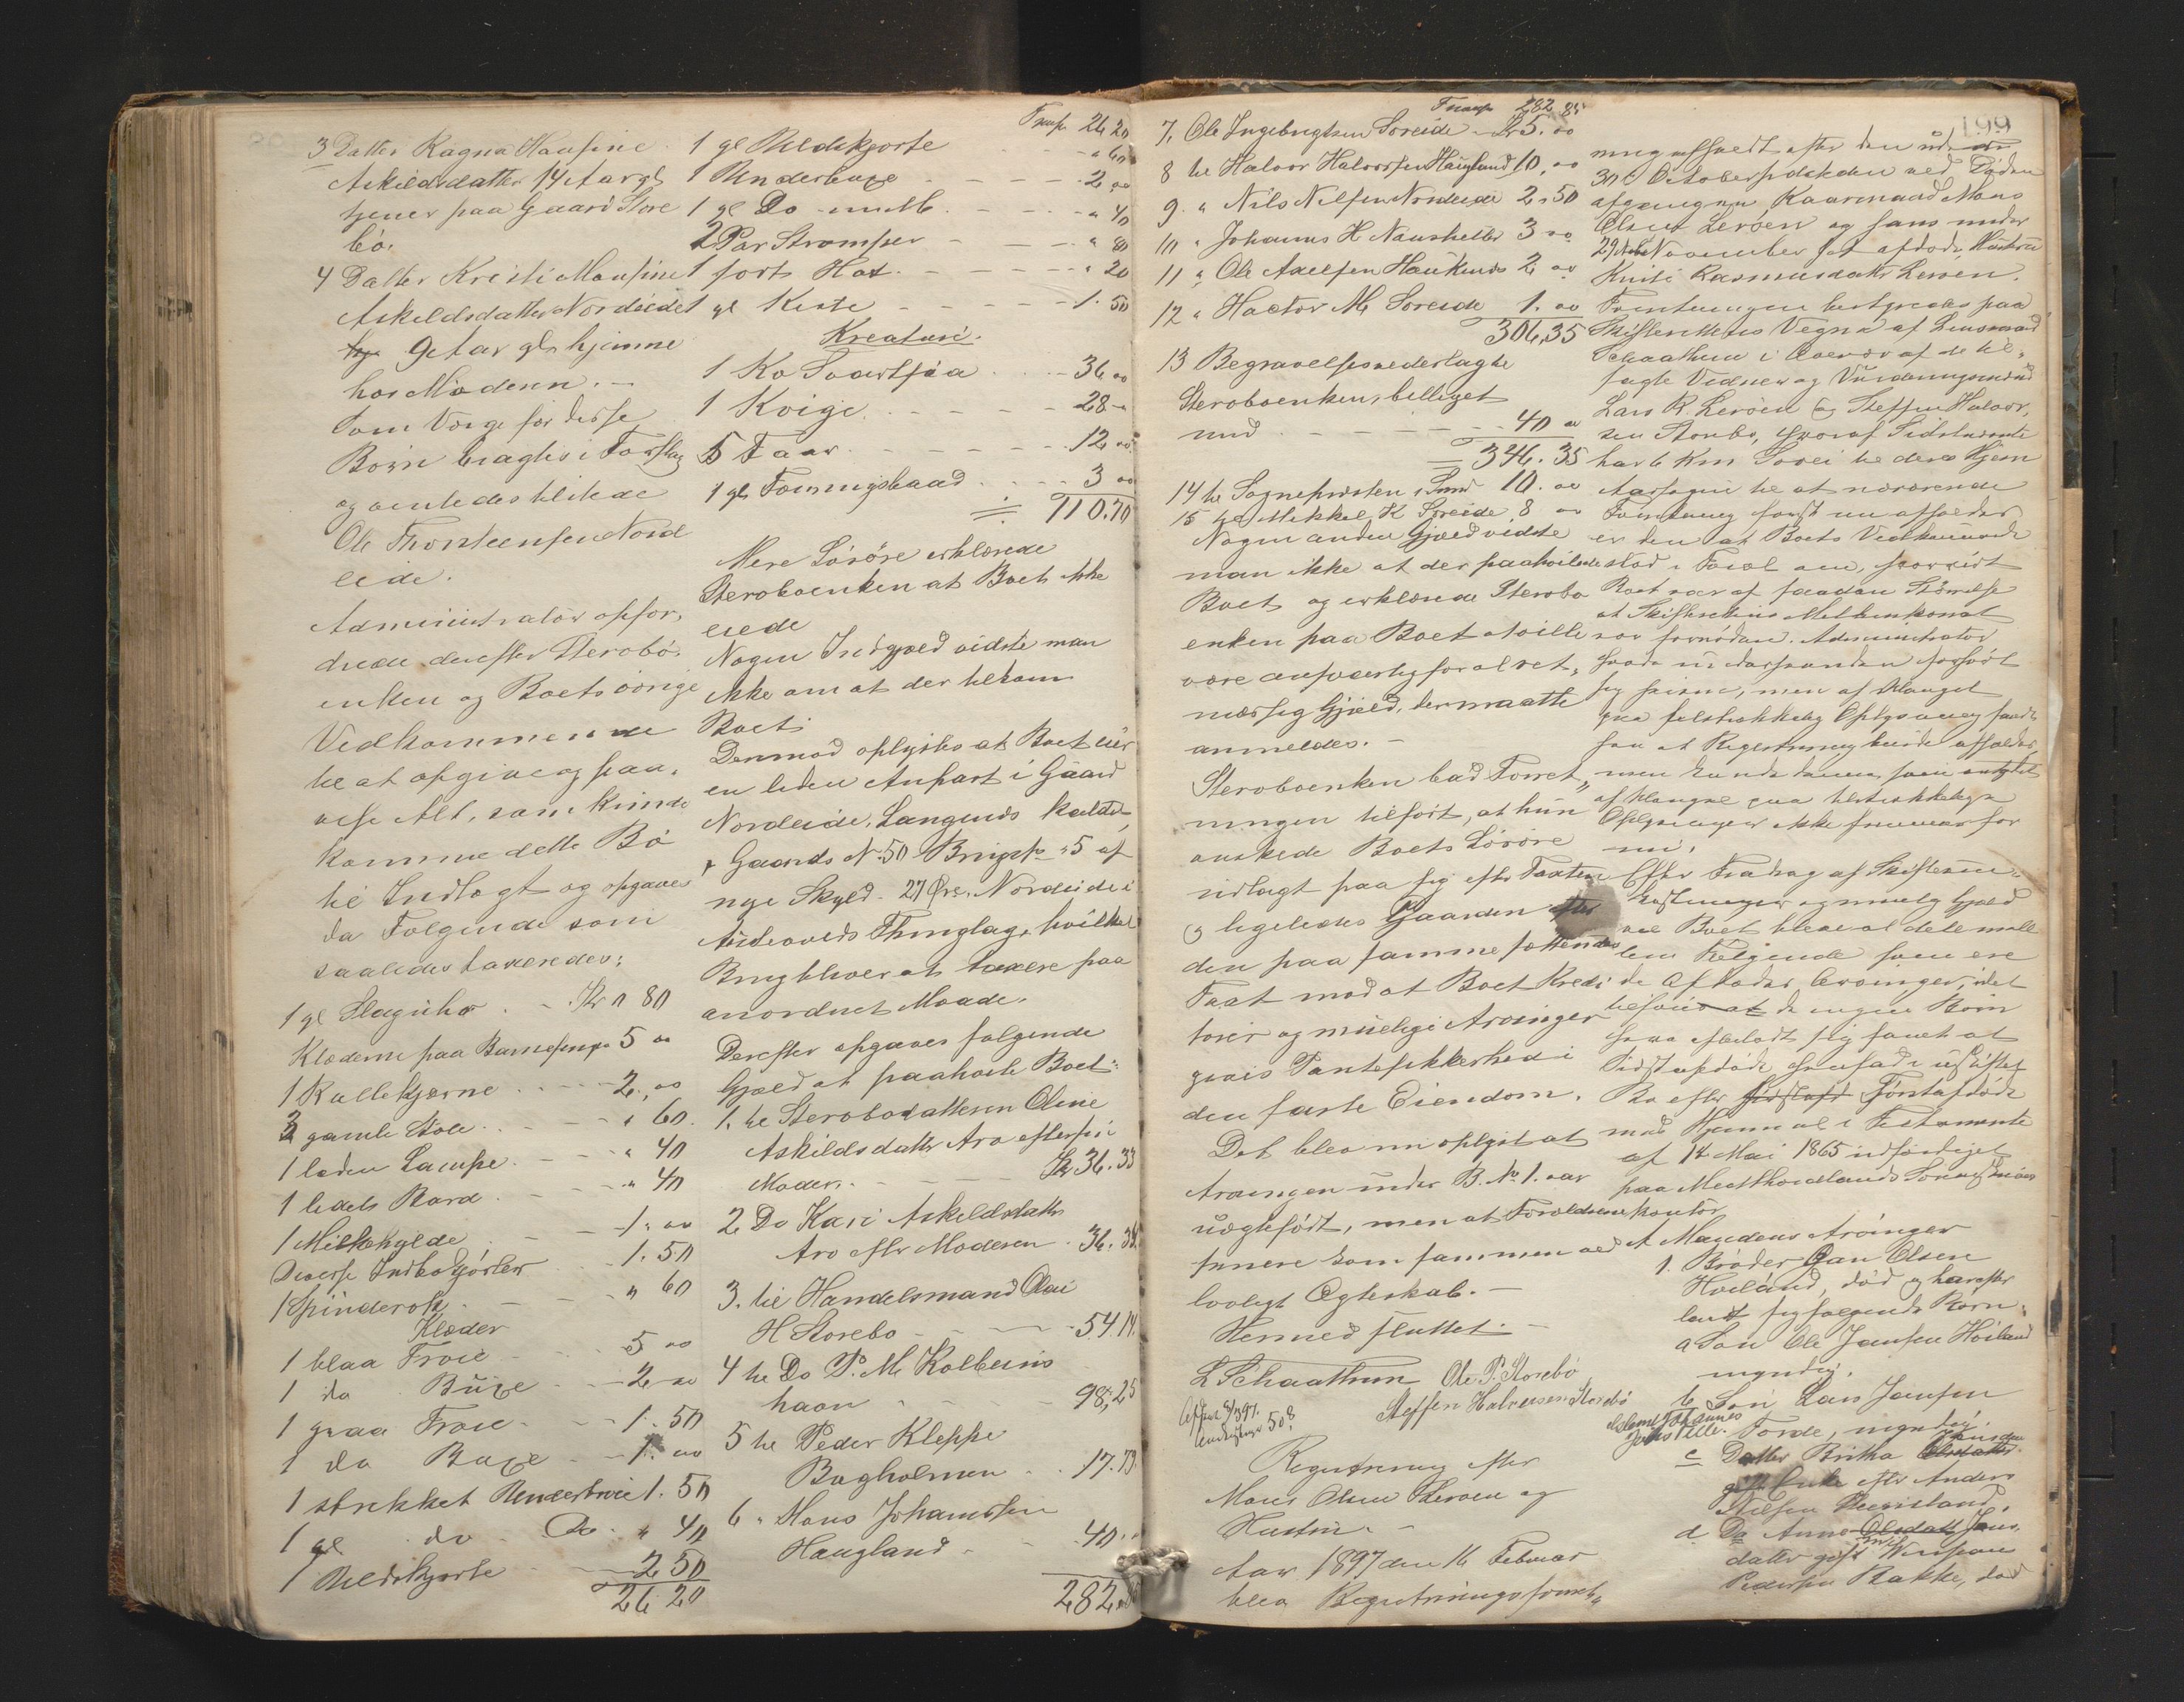 3 Datter Ragna Hansine
Askildsdatter 14 Aar gl
tjener paa Gaard Store
bö.
4 Datter Kristi Monsine
Askeldsdatter Nordeidet
9 Aar gl. hjemme
hos Moderen. -
Som Værge for disse
Börn bragtes i Forslag
og anmeldes
Ole Thorsteensen Nord
eide.
Administrator opfor,
drede derefter Sterbo-
enken og Boets övrige
Vedkommende
til at opgive og paa,
vise Alt, som kunde
komme dette Bo
til Indtægt og opgaves
da Fölgende som
saaledes taxeredes:
1 gl Slaguhr - Kr 0 80
Klæderne paa 5 00
1 Kullekjærne 2,00
2 gamle Stole " 60
1 liden Lampe " 40
1 lidet Bord " 40
1 Melkehylde 1,00
Diverse Indbogjörler 1.50
1 Spinderok " 60
Klæder
1 blaa Troie 5 00
1 do Buxe 2 00
1 graa Troie 1.50
1 do Buxe 1.00
1 strikket Undertroie 1.50
1 gl do Do " 40
1 Uldskjorte 2 50
26 20
Transp 26 20
1 gl Uldskjorte " 60
1 Underbuxe 2 00
1 gl Do " 40
2 Par Strömper " 80
1 sort Hat " 20
1 gl Kiste 1.50
Kreature.
1 Ko Svartsia 36 00
1 Kvige 28 -
5 Faar 12 00
1 gl Færingsbaad 3 00
= 110.70
Mere Lösöre erklærede
Sterboenken at Boet ikke
eiede
Nogen Indgjæld vidste man
ikke om at der tilkom
Boet.
Derimod oplystes at Boet eier
en liden Anpart i Gaard
Nordeide, Langenes kaldet,
Gaards No 50 Brugs No 5 af
nye Skyld - 27 Öre, Nordeide i
Austevolds Thinglag, hvilket
Brug bliver at taxere paa
anordnet Maade.
Derefter opgaves fölgende
Gjæld at paahvile Boet:
1. til Sterbodatteren Oline
Askildsdatter Arv efter sin
Moder Kr 36.33
2 Do Kari Askeldsdatter
Arv efter Moderen 36.34
3. til Handelsmand Olai
H Storebo 54.14
4 til Do P. M. Kolbeins
havn 98,25
5 til Peder Kleppe
Bagholmen 17.79
6 " Hans Johannessen
Haugland 40,"
282,85
Transp 282,85
7. Ole Ingebrigtsen Soreide Kr 5.00
8 til Halvor Halvorsen Haugland 10,00
9. " Nils Nilsen Nordeide 2.50
10 " Johannes H Naustheller 3 00
11 " Ole Axelsen Haukenes 2 00
12 " Hactor M Soreide 1.00
306,35
13 Begravelsesnedlagte
Sterboenken, billiget
med 40 00
= 346.35
14 til Sognepræsten i Sund 10.00
15 til Mikkel K Soreide 8 00
Nogen anden Gjæld vidste
man ikke at der paahvilede
Boet og erklærede Sterbo
enken paa Boet at ville
være ansvarlig for al ret,
mæssig Gjæld, der maatte
anmeldes. -
Sterboenken bad Forret,,
ningen tilfört, at hun
önskede Boets Lösöre
udlagt paa sig efter Taxten
og ligeledes Gaarden efter
den paa samme sættendes
Taxt mod at Boet Kredi
torer og muelige Arvinger
gives Pantesikkerhed i
den faste Eiendom.
Det blev nu oplyst at
Arvingen under B. No 1. var
uægtefödt, men at Forældrene
senere kom sammen ved
lovligt Ægteskab. -
Hermed sluttet. -
L Schaathun Ole P. Storebö
Steffen Halvorsen Storebö
Registrering efter
Mons Olsen Leröen og
Hustru. -
Aar 1897 den 16 Februar
blev Registreringsforret,,
199
ning afholdt efter den
30 October sidstleden ved Döden
afgangne Kaarmand Mons
Olsen Leröen og hans under
29de November s. A. afdöde Hustru
Kristi Rasmusdatter Leröen.
Forretningen bestyredes paa
Skifterettens Vegne af Lensmand
Schaathun i Overvær af de til,
sagte Vidner og Vurderingsmænd
Lars R. Leröen og Steffen Halvor,
sen Storebo, hvoraf Sidstnævnte
har 6 Km Sövei til dere Hjem
Aarsagen til at nærværende
Forretning först nu afholdes
er den at Boets Vedkommende
stod i Tvivl om, hvorvidt
Boet var af saadan Störrelse
at Skifterettens Mellemkomst
var fornöden. Administrator
havde imidlertid forhört
sig herom, men af Mangel
paa tilstrækkelig Oplysning
at Registrering burde afholdes,
men kunde denne som antydet
af Mangel paa tilstrækkelige
Oplysninger ikke fremmes för
nu.
Efter Fradrag af Skifteom-
kostninger og muelig Gjæld
vil Boet blive at dele mell
lem Fölgende som ere
de Afdödes Arvinger, idet
tilföies at de ingen Börn
have efterladt sig samt at
Sidstafdöde hensad i uskiftet
Bo efter Förstafdöde
med Hjemmel i Testamente
af 14 Mai 1865 udfærdiget
paa Midthordlands Sorenskriver
kontör
A Mandens Arvinger
1. Broder Jan Olsen
Hovland, död og har efter
ladt sig fölgende Börn:
a Sön Ole Jansen Hoiland
myndig.
b Sön Lars Jansen
Forde, myndig.
c Datter Britha Jansdatter
Enke efter Anders
Nilsen
d Do Anna Jans,
datter gift med
Pedersen Bakke, död